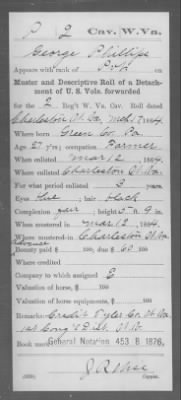 P 2 Cav. W. Va.
George Phillips
Appears with rank of Pvt. on
Muster and Descriptive Roll of a Detach-
ment of U. S. Vols. forwarded
for the 2 Reg't W. Va. Cav. Roll dated
Charleston W. Va. Mch 1864.
Where born Green Co. Pa.
Age 27 y'rs; occupation Farmer
When enlisted Mar 12, 1864.
Where enlisted Charleston W. Va.
For what period enlisted 3 years.
Eyes blue; hair black
Complexion fair; height 5 ft. 9 in.
When mustered in Mar 12, 1864.
Where mustered in Charleston W. Va.
Bounty paid $ 100; due $ 60 100
Where credited
Company to which assigned E
Valuation of horse, $ 100
Valuation of horse equipments, $ 100
Remarks: Credit Tyler Co. W. Va.
1st Cong'l Dist. W. Va.
Book mark: General Notation 453 B 1876.
Copyist.